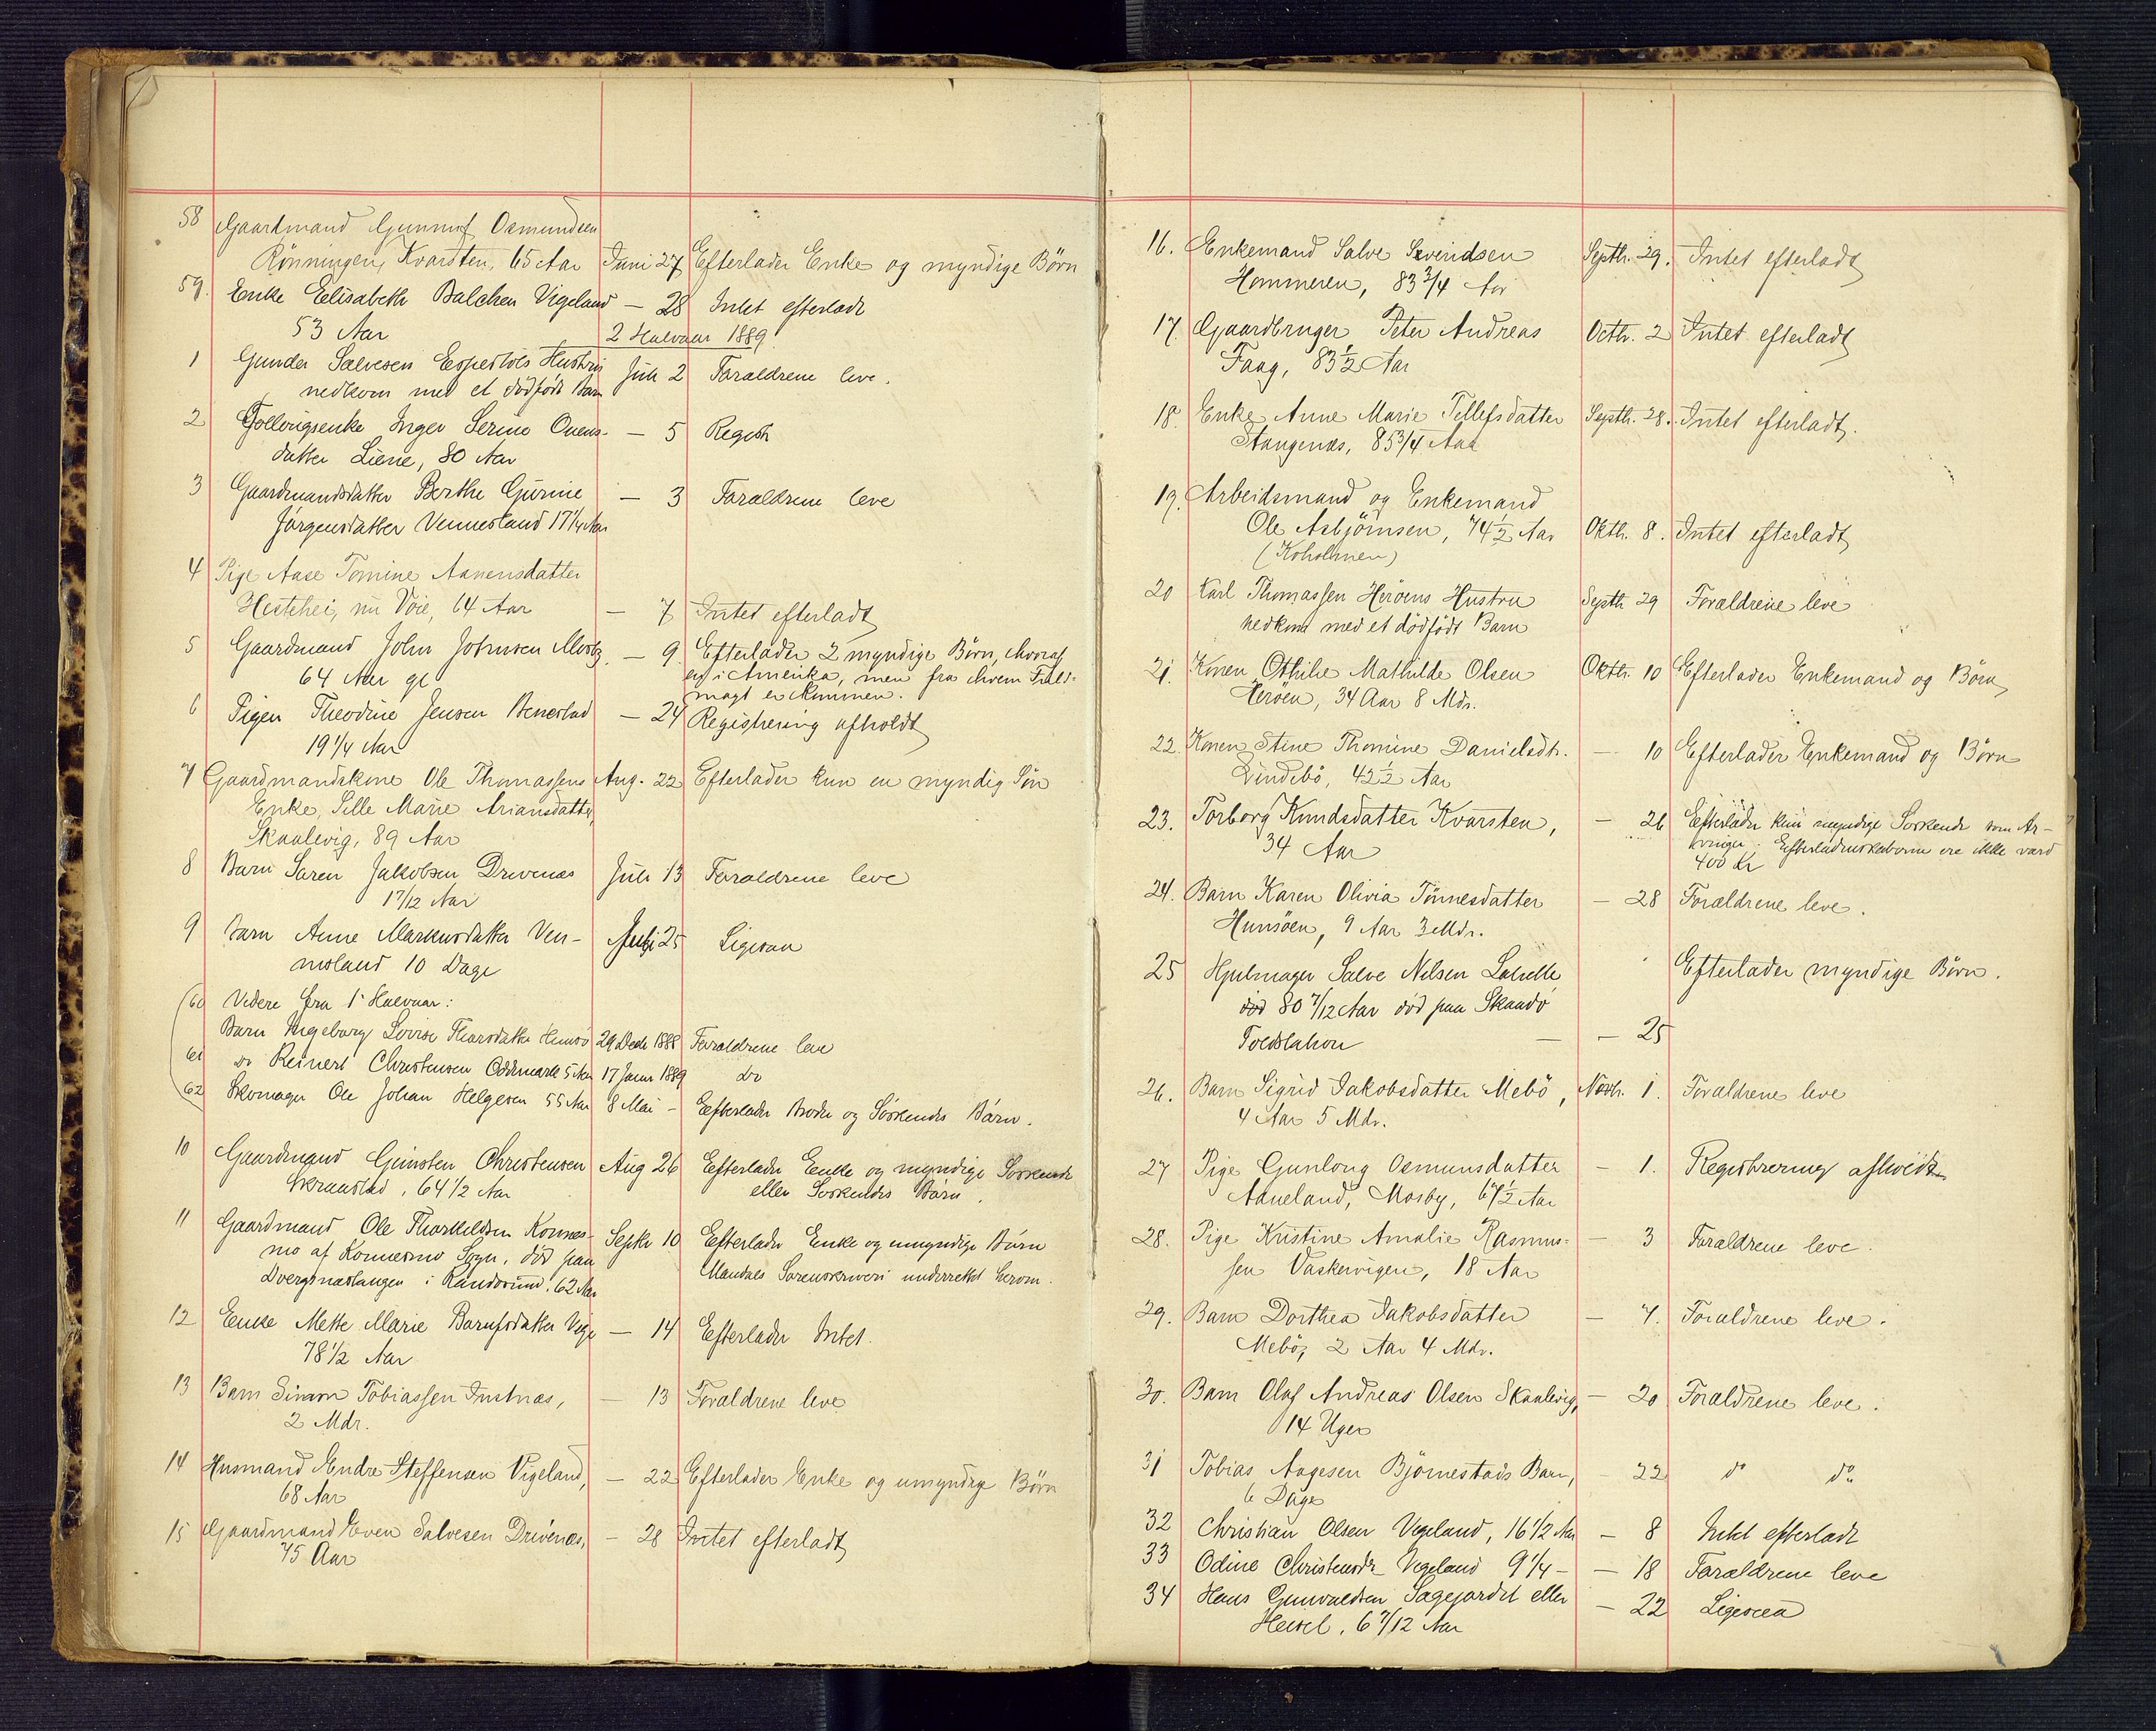 58 Gaardmand Gunnuf Osmundsen
Rönningen, Kvarsten, 65 Aar Juni 27 Efterlader Enke og myndige Börn
59. Enke Elisabeth Balchen Vigeland — 28 Intet efterladt
53 Aar
2 Halvaar 1889
1 Gunder Salvesen Hustru
nedkom med et dödfödt Barn Juli 2 Forældrene leve.
2 Inger Serine Onens-
datter Liene, 80 Aar — 5 Registr
3 Gaardmandsdatter Berthe Gurine — 3 Forældrene leve
Jörgensdatter Vennesland 17 1/4 Aar
4 Pige Aase Tomine Aanensdatter
Hestehei, nu Voie, 64 Aar — 7 Intet efterladt
5 Gaardmand John Johnsen Mosby — 9. Efterlader 2 myndige Börn, hvoraf
64 Aar gl i Amerika, men fra hvem Fuld-
magt er kommen.
6 Pigen Theodine Jensen Benestad — 24 Registrering afholdt
19 1/4 Aar
7 Gaardmandskone Ole Thomassens Aug. 22 Efterlader kun en myndig Sön
Enke, Sille Marie Ariansdatter,
Skaalevig, 89 Aar
8 Barn Søren Jakobsen Drivenæs Juli 13 Forældrene leve
1 7/12 Aar
9 Barn Anne Markusdatter Ven- Juli 25 Ligesaa
nesland 10 Dage
(60 Videre fra 1 Halvaar:
Barn Ingeborg Lovise Thorsdatter Hunsö 29 Decb 1888 Forældrene leve
61 do Reinert Christensen Oddmark 5 Aar 17 Januar 1889 do
(62 Skomager Ole Johan Helgesen 55 Aar 8 Mai — Efterlader Broder og Söskendes Börn.
10 Gaardmand Gunsten Christensen Aug 26 Efterlader Enke og myndige Söskende
Skraastad, 64 1/2 Aar eller Söskendes Börn.
11 Gaardmand Ole Thorkildsen Konnes- Septbr 10 Efterlader Enke og umyndige Börn
mo af Konnesmo Sogn, död paa Mandals Sorenskriveri underrettet herom.
Dvergsnæstangen i Randösund, 62 Aar
12 Enke Mette Marie Vige — 14 Efterlader Intet.
78 1/2 Aar
13 Barn Simon Tobiassen Justnæs, — 13 Forældrene leve
2 Mdr.
14 Husmand Endre Steffensen Vigeland, — 22 Efterlader Enke og umyndige Börn
68 Aar
15 Gaardmand Even Salvesen Drivenæs, — 28 Intet efterladt
75 Aar
16. Enkemand Salve Sverindsen Septbr. 29. Intet efterladt
Hommeren, 83 3/4 Aar
17. Gaardbruger Peter Andreas Octbr. 2 Intet efterladt
Faag, 83 1/2 Aar
18. Enke Anne Marie Tellefsdatter Septbr. 28. Intet efterladt.
Stangenæs, 85 3/4 Aar
19. Arbeidsmand og Enkemand
Ole Asbjörnsen, 74 1/2 Aar Oktbr. 8. Intet efterladt
(Kohohmen)
20 Karl Thomassen Heröens Hustru Septbr 29 Forældrene leve
nedkom med et dödfödt Barn
21. Konen Othilie Mathilde Olsen Oktbr. 10 Efterlader Enkemand og Börn
Heröen, 34 Aar 8 Mdr.
22. Konen Stine Thomine Danielsdtr. — 10 Efterlader Enkemand og Börn
Lindebö, 42 1/2 Aar
23. Torborg Knudsdatter Kvarsten, — 26 Efterlader kun myndige Söskende som Ar-
34 Aar vinger. Efterladenskaberne ere ikke værd
400 Kr
24. Barn Karen Olivia Tönnesdatter — 28 Forældrene leve.
Hunsöen, 9 Aar 3 Mdr.
25 Hjulmager Salve Nilsen Efterlader myndige Börn.
död 80 7/12 Aar död paa Skaadö
Toldstation — — 25
26. Barn Sigrid Jakobsdatter Mebö, Novbr. 1. Forældrene leve
4 Aar 5 Mdr.
27 Pige Gunlong Osmunsdatter — 1. Registrering afholdt
Aaneland, Mosby, 67 1/2 Aar
28. Pige Kristine Amalie Rasmus- — 3 Forældrene leve.
sen Vaskervigen, 18 Aar
29. Barn Dorthea Jakobsdatter — 7. Forældrene leve.
Mebö, 2 Aar 4 Mdr.
30. Barn Olaf Andreas Olsen Skaalevig, — 20 Forældrene leve.
14 Uger
31 Tobias Aagesen Björnestads Barn, — 22 do do
6 Dage
32 Christian Olsen Vegeland, 16 1/2 Aar — 8 Intet efterladt
33 Odine Christensdtr Vegeland 9 1/4 — — 18 Forældrene leve
34 Hans Gunvaldsen Sagejordet eller — 22 Ligesaa
Heisel, 6 7/12 Aar